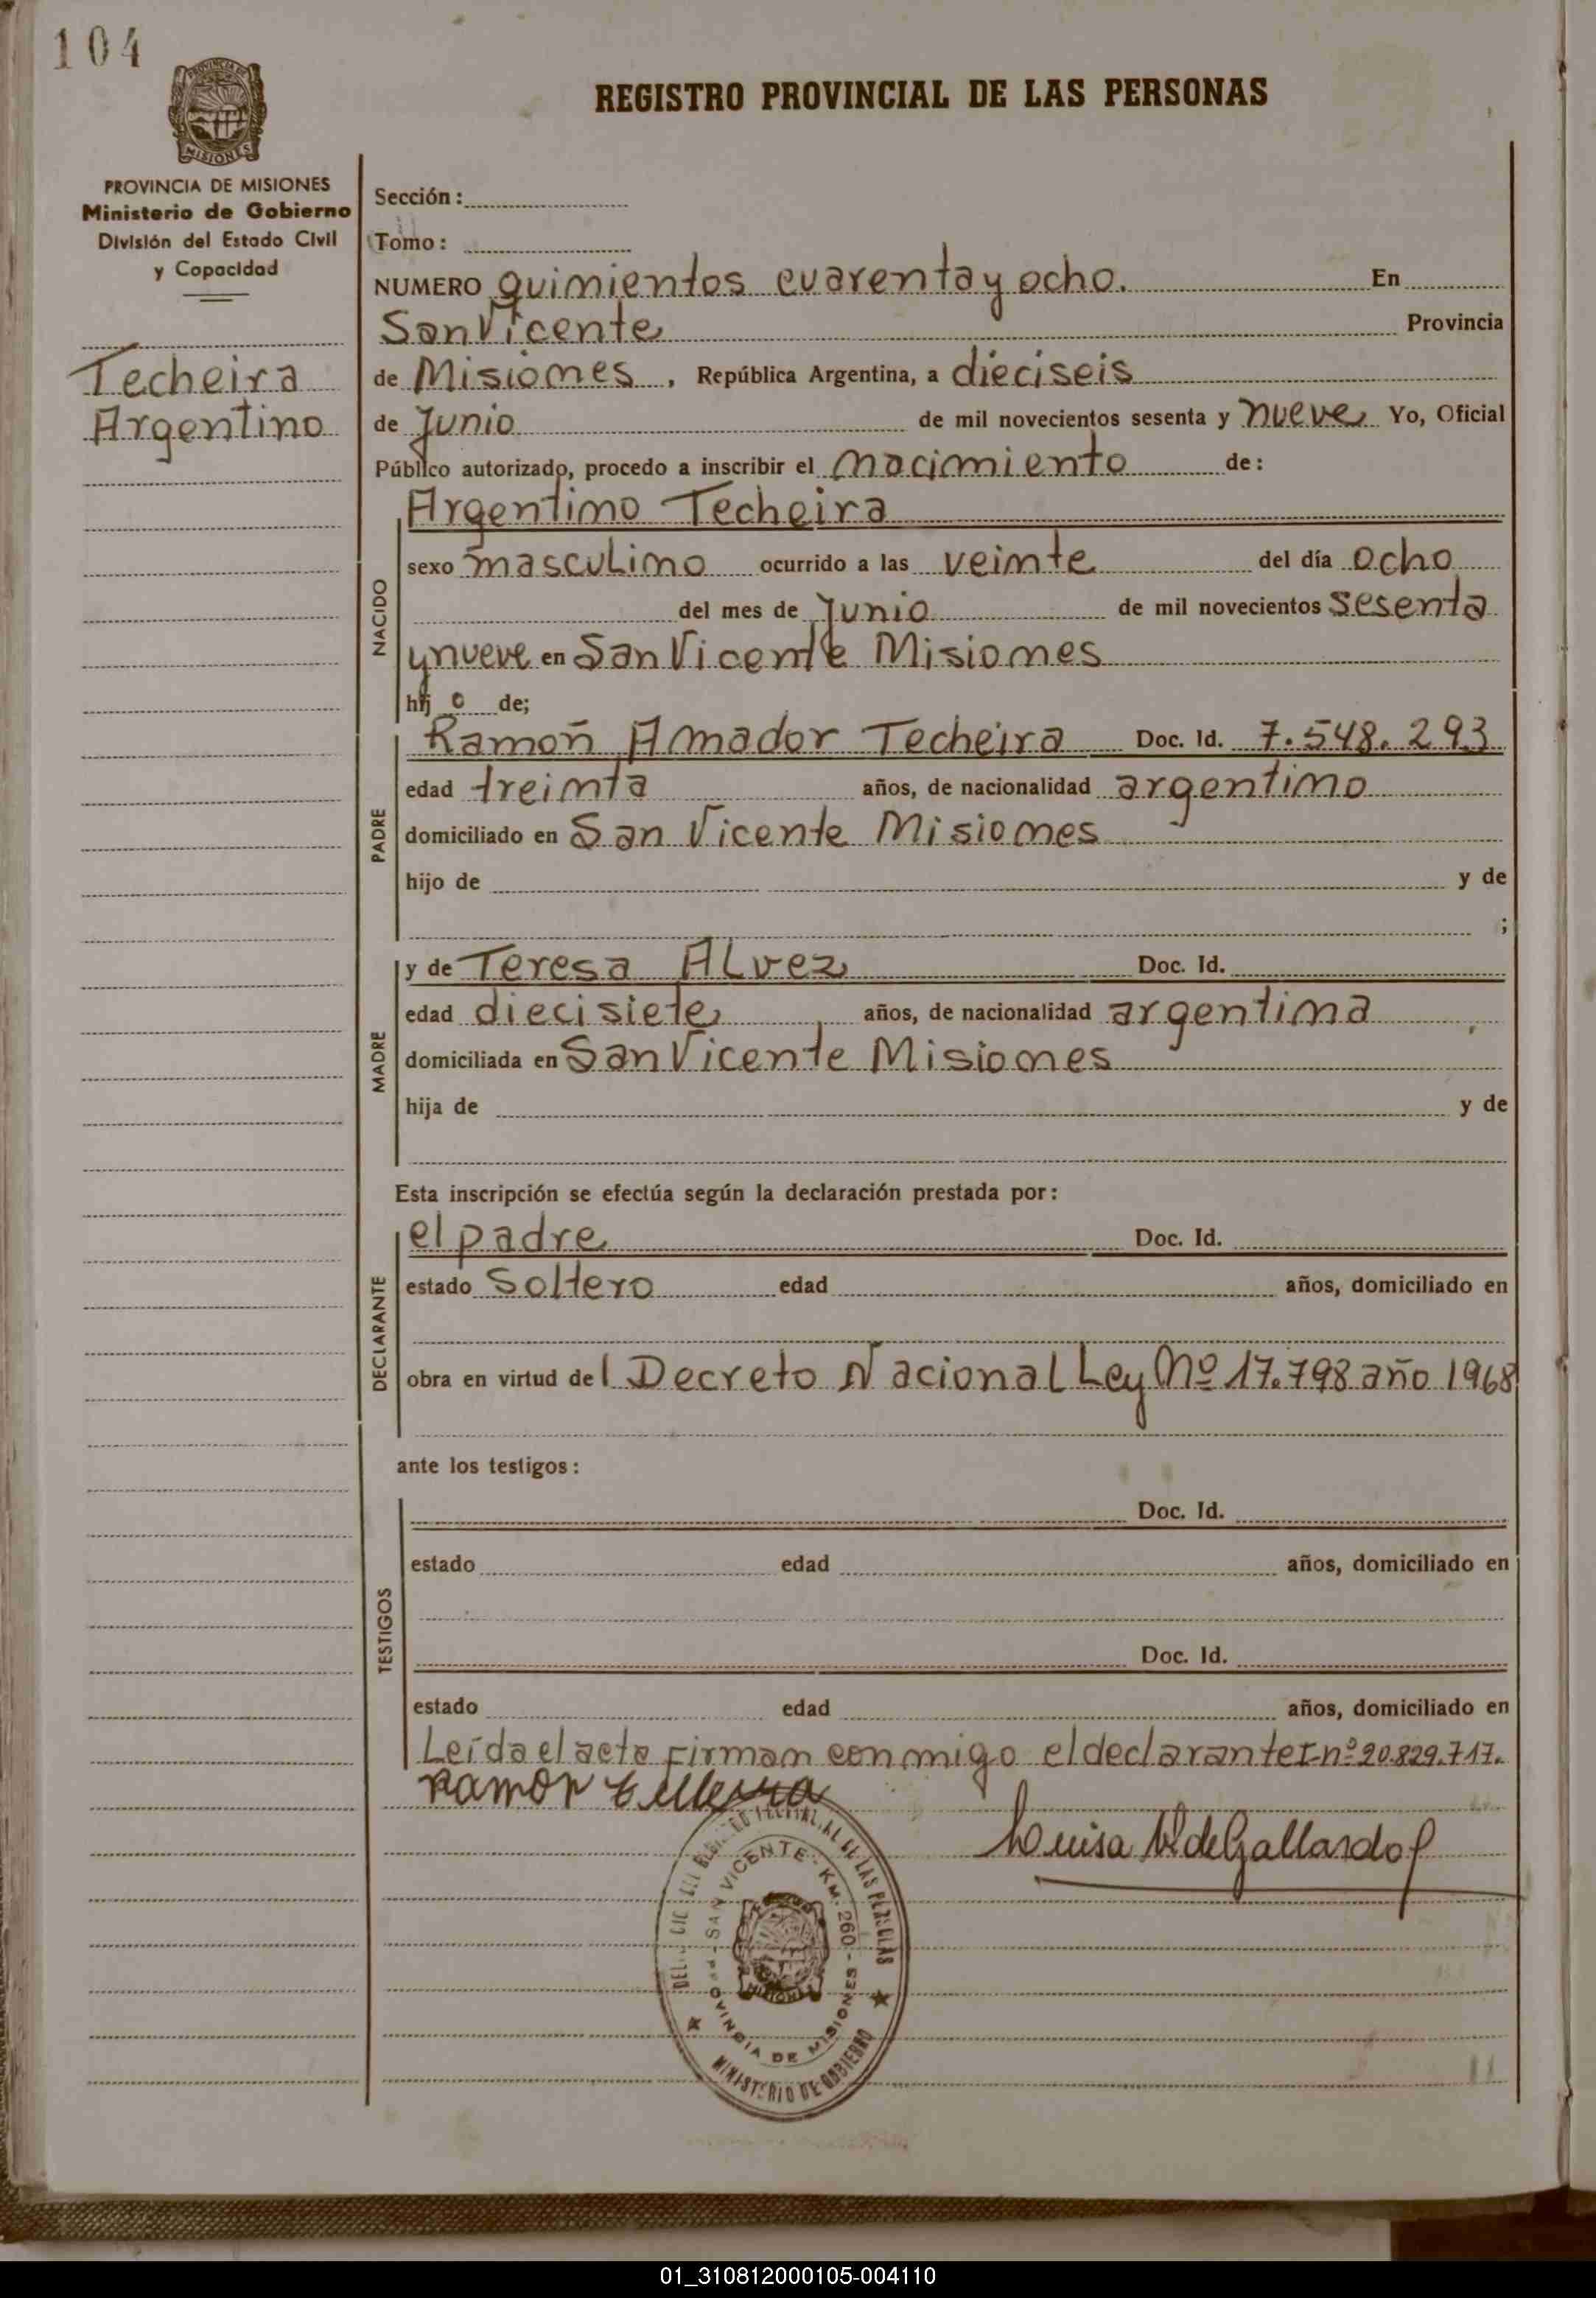 104
PROVINCIA DE MISIONES
Ministerio de Gobierno
División del Estado Civil
y Capacidad
Techeira
Argentino
REGISTRO PROVINCIAL DE LAS PERSONAS
Sección:
Tomo:
NUMERO quimientos cuarenta y ocho. En
San Vicente Provincia
de Misiomes, República Argentina, a dieciseis
de Junio de mil novecientos sesenta y nueve Yo, Oficial
Público autorizado, procedo a inscribir el nacimiento de:
NACIDO
Argentimo Techeira
sexo masculimo ocurrido a las veimte del día ocho
del mes de Junio de mil novecientos sesenta
y nueve en San Vicente Misiomes
hij o de;
PADRE
Ramon Amador Techeira Doc. Id. 7.548.293
edad treimta años, de nacionalidad argentimo
domiciliado en San Vicente Misiomes
hijo de y de
;
MADRE
y de Teresa Alvez Doc. Id.
edad diecisiete años, de nacionalidad argentima
domiciliada en San Vicente Misiomes
hija de y de
Esta inscripción se efectúa según la declaración prestada por:
DECLARANTE
el padre Doc. Id.
estado Soltero edad años, domiciliado en
obra en virtud del Decreto Nacional Ley Nº 17.798 año 1968
ante los testigos:
TESTIGOS
Doc. Id.
estado edad años, domiciliado en
Doc. Id.
estado edad años, domiciliado en
Leída el acta firman conmigo el declarante I-nº 20.829.717.
Ramon
Luisa de Gallardo
SAN VICENTE - KM. 260 -
PROVINCIA DE MISIONES
MISIONES
MINISTERIO DE GOBIERNO
01_310812000105-004110